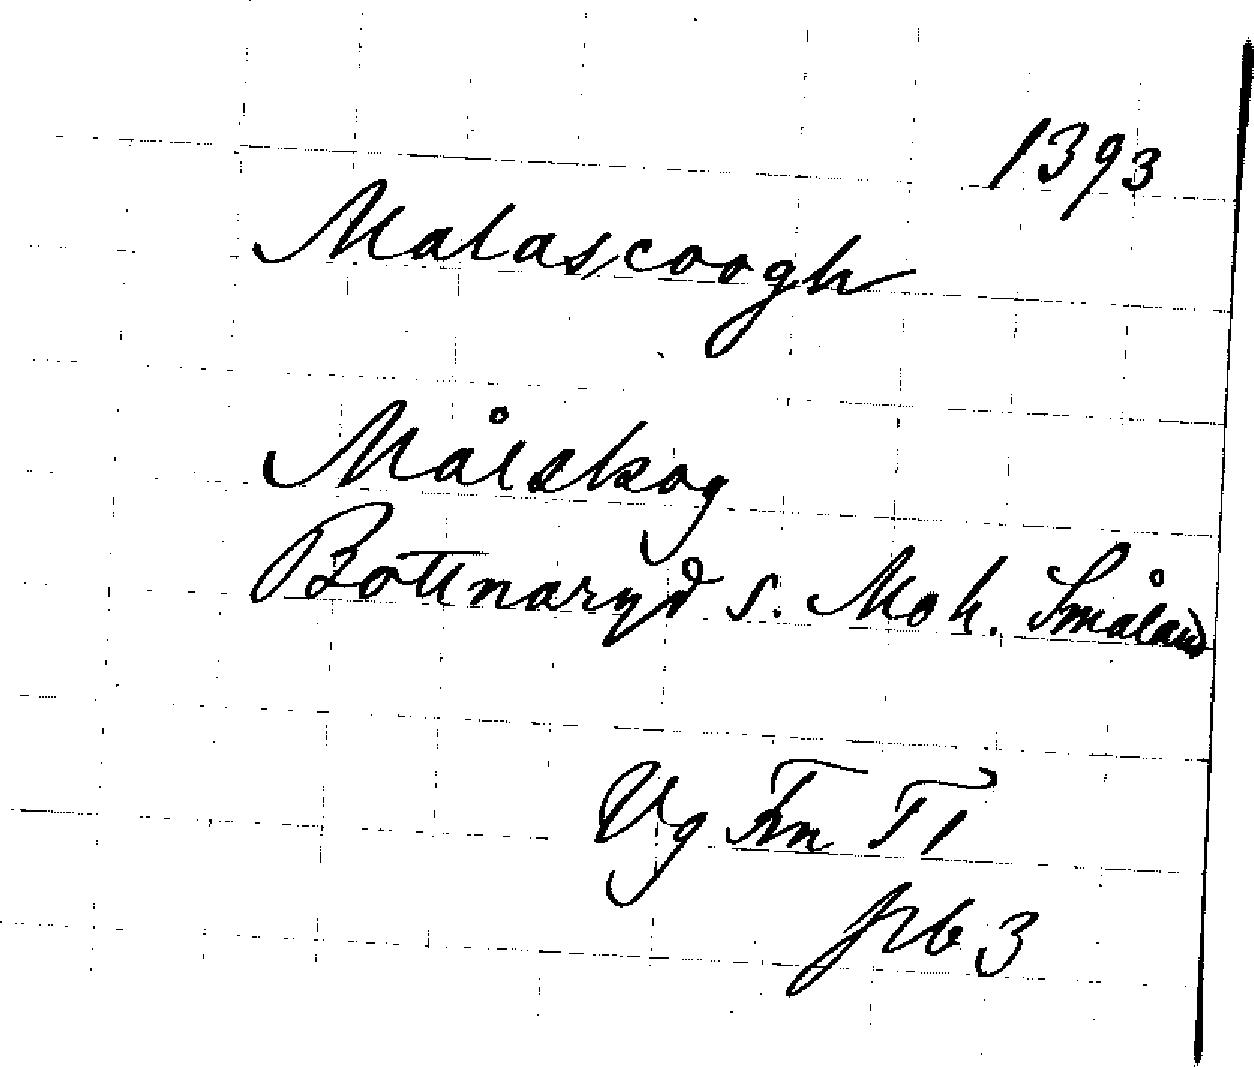 1393
Malascoogh
Målskog
Bottnaryd s. Moh. Småland
Vg Fm T1
pb 3